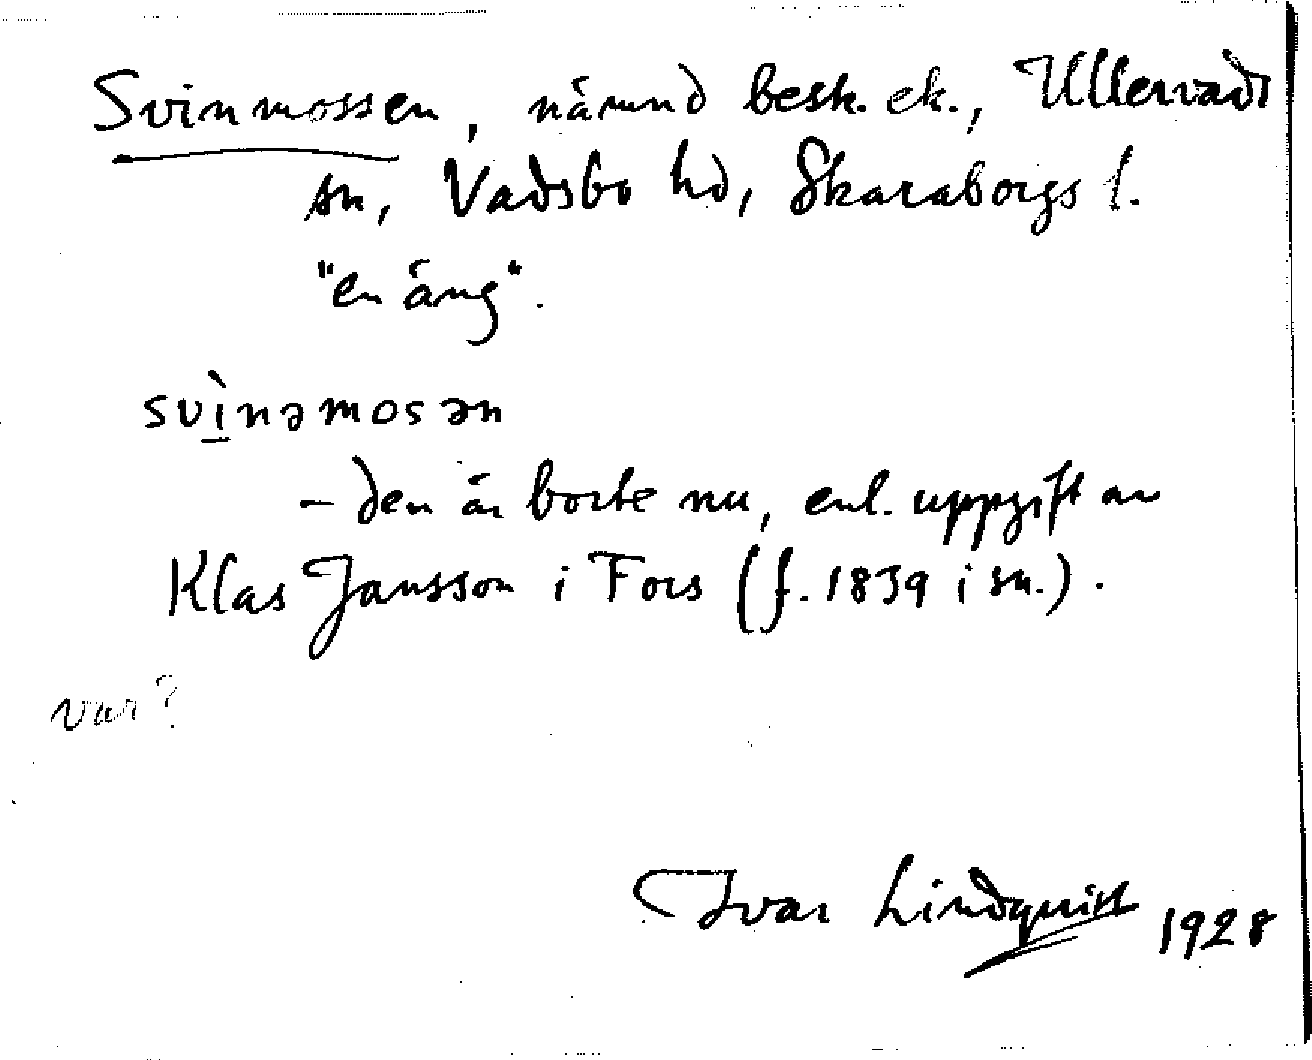 Svinmossen, nämnd besk. ek., Ullervads
sn, Vadsbo hd, Skaraborgs l.
"en äng".
svì̱nəmosən
– den är borte nu, enl. uppgift av
Klas Jansson i Fors (f. 1839 i sn.).
var?
Ivar Lindquist 1928